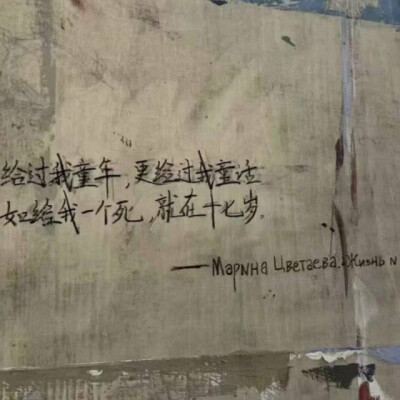 给过我童年，更给过我童话
如给我一个死，就在十七岁。
——Марина Цветаева. Жизнь и